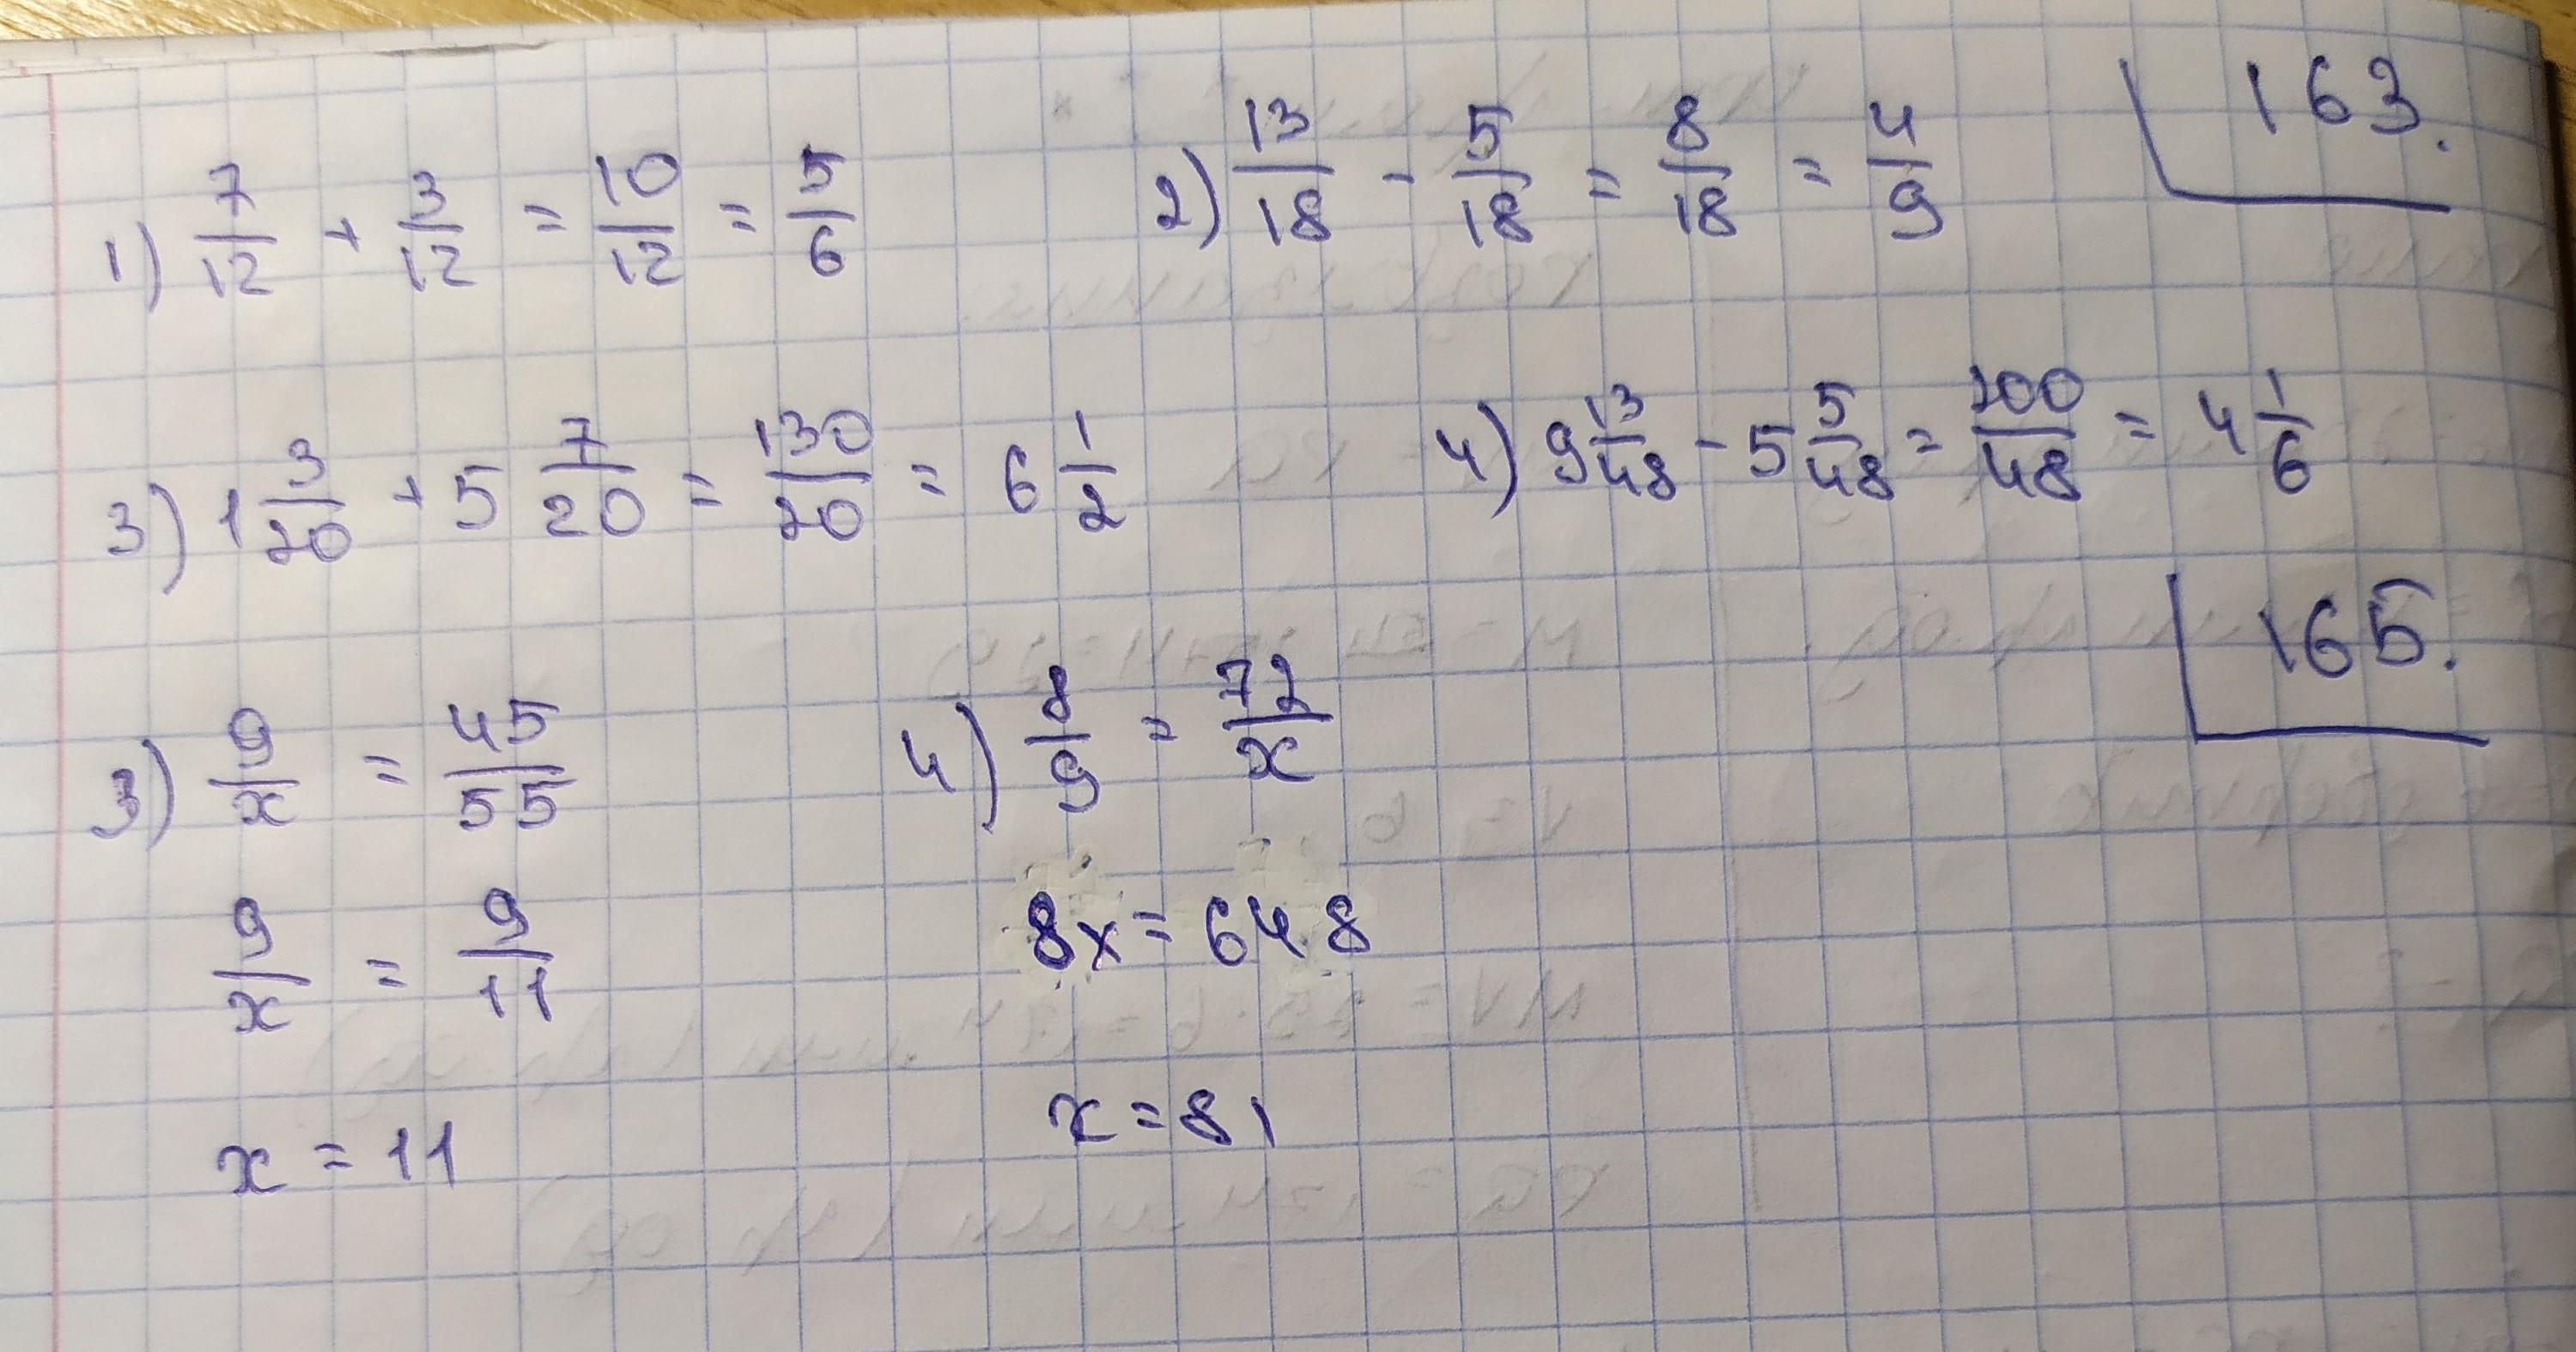 163.
1) 7/12 + 3/12 = 10/12 = 5/6
2) 13/18 - 5/18 = 8/18 = 4/9
3) 1 3/20 + 5 7/20 = 130/20 = 6 1/2
4) 9 13/48 - 5 5/48 = 200/48 = 4 1/6
165.
3) 9/x = 45/55
9/x = 9/11
x = 11
4) 8/9 = 72/x
8x = 648
x = 81